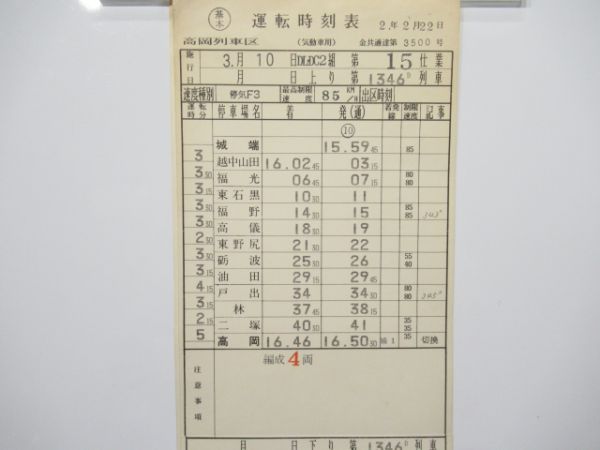 基本 運転時刻表 2.年2月22日
高岡列車区 (気動車用) 金共通達第3500号
施行日 3.月10日DL&DC2組 第15仕業
月 日上り 第1346D列車
速度種別 停気F3 最高制限速度 85KM/H 出区時刻
運転時分 停車場名 着 発(通) 着発線 制限速度 記事
⑩
城端 15.5945 85
3 越中山田 16.0245 0315
330 福光 0645 0715 80 80
315 東石黒 1030 11
330 福野 1430 15 85 85 343D
330 高儀 1830 19
230 東野尻 2130 22
330 砺波 2530 26 55 40
315 油田 2915 2945
415 戸出 34 3430 80 80 345D
315 林 3745 3815
215 二塚 4030 41 35 35
5 高岡 16.46 16.5030 1 35 切換
注意事項 編成4両
月 日下り 第1346D列車